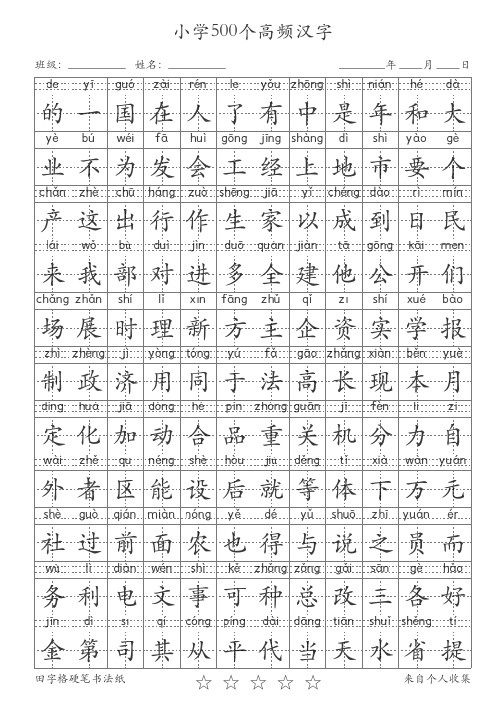 小学500个高频汉字
班级: 姓名: 年 月 日
de yī guó zài rén le yǒu zhōng shì nián hé dà
的 一 国 在 人 了 有 中 是 年 和 大
yè bú wéi fā huì gōng jīng shàng dì shì yào gè
业 不 为 发 会 工 经 上 地 市 要 个
chǎn zhè chū háng zuò shēng jiā yǐ chéng dào rì mín
产 这 出 行 作 生 家 以 成 到 日 民
lái wǒ bù duì jìn duō quán jiàn tā gōng kāi men
来 我 部 对 进 多 全 建 他 公 开 们
chǎng zhǎn shí lǐ xīn fāng zhǔ qǐ zī shí xué bào
场 展 时 理 新 方 主 企 资 实 学 报
zhì zhèng jì yòng tóng yú fǎ gāo zhǎng xiàn běn yuè
制 政 济 用 同 于 法 高 长 现 本 月
dìng huà jiā dòng hé pǐn zhòng guān jī fēn lì zì
定 化 加 动 合 品 重 关 机 分 力 自
wài zhě qū néng shè hòu jiù děng tǐ xià wàn yuán
外 者 区 能 设 后 就 等 体 下 万 元
shè guò qián miàn nóng yě dé yǔ shuō zhī yuán ér
社 过 前 面 农 也 得 与 说 之 员 而
wù lì diàn wén shì kě zhǒng zǒng gǎi sān gè hǎo
务 利 电 文 事 可 种 总 改 三 各 好
jīn dì sī qí cóng píng dài dāng tiān shuǐ shěng tí
金 第 司 其 从 平 代 当 天 水 省 提
田字格硬笔书法纸 ☆ ☆ ☆ ☆ ☆ 来自个人收集